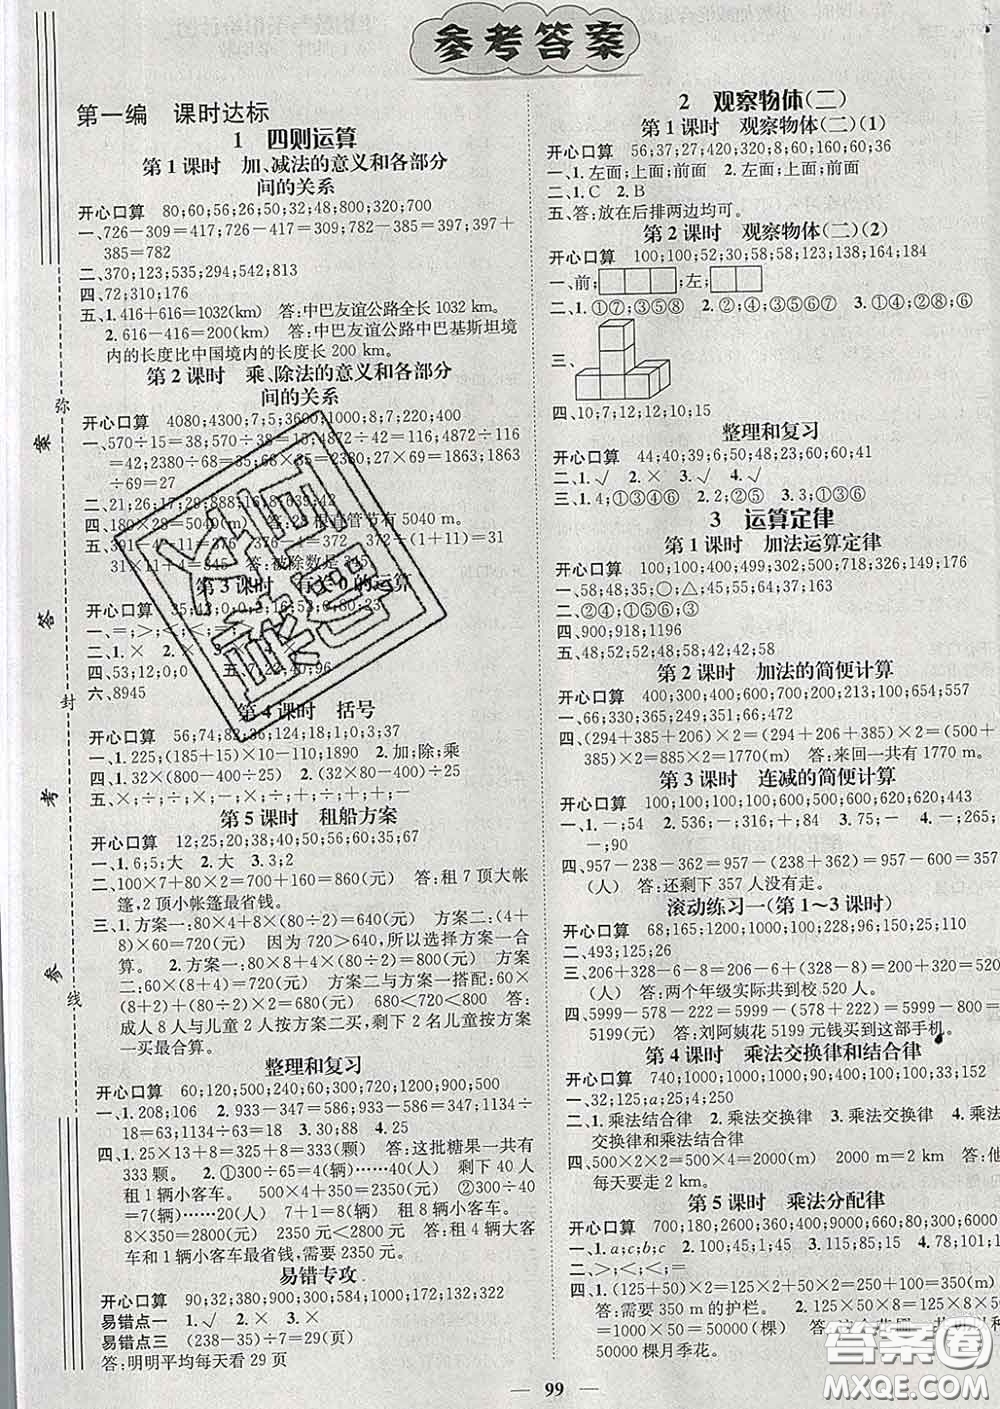 参考答案
第一编 课时达标
1 四则运算
第1课时 加、减法的意义和各部分
间的关系
开心口算 80;60;56;26;50;32;48;800;320;700
一、726-309=417;726-309=417;782-385=397;397+
385=782
二、370;123;535;294;542;310
四、72;310;176
五、1.416+616=1032(km) 答:中巴友谊公路全长1032 km.
2.616-416=200(km) 答:中巴友谊公路中巴基斯坦境
内的长度比中国境内的长度长200 km.
第2课时 乘、除法的意义和各部分
间的关系
开心口算 4080;4300;7;5;3600;1000;8;7;220;400
一、570÷15=38;570÷38=15;4872÷42=116;4872÷116
=42;2380÷68=35;68×35=2380;27×69=1863;1863
÷69=27
二、21;26;17;29;888;16;8;639;42
四、180×28=5040(m) 答:28根直管节有5040 m.
五、
答:被除数是345.
第3课时 有关0的运算
开心口算
二、1.× 2.×
四、53;12;0;0 五、7;22;40;96
六、8945
第4课时 括号
开心口算 56;74;82;36;124;18;1;0;3;37
一、1.225;(185+15)×10-110;1890 2.加;除;乘
四、1.32×(800-400÷25) 2.(32×800-400)÷25
五、×;÷;÷;-;×;-;+;÷;-;÷;+
第5课时 租船方案
开心口算 12;25;20;38;40;50;56;60;35;67
一、1.6;5;大 2.大 3.2;大
二、100×7+80×2=700+160=860(元) 答:租7顶大帐
篷,2顶小帐篷最省钱.
三、1.方案一:80×4+80×(80÷2)=500(元) 方案二:(4+
8)×60=720(元) 因为720>500,所以选择方案一合
算. 2.方案一:80×8+4×(80÷2)=800(元) 方案
二:60×(8+4)=720(元) 方案二与方案一搭配:60×
(8+2)+(80÷2)×2=680(元) 680<720<800 答:
成人8人与儿童2人按方案二买,剩下2名儿童按方案
一买最合算.
整理和复习
开心口算 60;120;500;240;60;300;720;1200;900;500
一、1.208;106 2.933-347=586;9×7=63;1134÷
18=63;1134÷63=18 3.30;88 4.25
四、1.25×13+8=325+8=333(颗) 答:这批糖果一共有
333颗. 2.①300÷65=4(辆)……40(人) 剩下40人
租1辆小客车. 500×4+350=2350(元) ②300÷40
=7(辆)……20(人) 7+1=8(辆)
8×350=2800(元) 2350元<2800元 答:租4辆大客
车和1辆小客车最省钱,需要2350元.
易错专攻
开心口算 90;32;380;900;300;584;1000;172;132;322
易错点一 1.√ 2.× 3.× 4.×
易错点三 (238-35)÷7=29(页)
答:明明平均每天看29页
2 观察物体(二)
第1课时 观察物体(二)(1)
开心口算 56;37;27;420;320;8;60;160;60;36
一、1.左面;上面;前面 2.左面;上面;前面
二、1.C 2.B
五、答:放在后排两边均可.
第2课时 观察物体(二)(2)
开心口算 100;100;52;30;58;58;123;138;164;184
一、前: ;左:
二、1.①⑦;③⑤ 2.②;④;③⑤⑥⑦ 3.①④;②⑧;⑥
三、
四、10;7;12;12;10;15
整理和复习
开心口算 44;40;39;6;50;48;23;60;41;60
二、1.√ 2.× 3.√ 4.√
三、1.4;①③④⑥ 2.②⑤ 3.5;①③④⑥
3 运算定律
第1课时 加法运算定律
开心口算 100;100;400;500;300;300;600;900;400;156
一、58;48;35;○;△;45;55;15;65;17
二、②④;①③⑤;⑥
四、900;918;1196
五、48;52;52;48;58;42;42;58
第2课时 加法的简便计算
开心口算 400;300;400;700;200;213;100;654;557
一、66;330;365;249;351;284;116
四、(294+385+206)×2=(294+206+385)×2=(500+
385)×2=885×2=1770(m) 答:来回一共有1770 m.
第3课时 连减的简便计算
开心口算 100;100;100;100;500;500;620;620;443
一、1.-;54 2.536;-;316;+;204 3.75;-;4.-;265;
-;90
四、957-238-362=957-(238+362)=957-600=357
(人) 答:还剩下357人没有走.
滚动练习一(第1～3课时)
开心口算 68;165;1200;1000;100;228;96;150;25;110
二、493;125;26
三、206+328-6-8=206-6+(328-8)=200+320=520
(人) 答:两个年级实际共到校520人.
四、5999-578-222=5999-(578+222)=5999-800=
5199(元) 答:刘阿姨花5199元钱买到这部手机.
第4课时 乘法交换律和结合律
开心口算 740;1000;1000;100;90;400;39;33;9;152
一、32;125;a;25;4;250
二、1.乘法结合律 2.乘法交换律 3.乘法交换律 4.乘法
交换律和乘法结合律
四、500×2×2=500×4=2000(m) 2000 m=2 km 答:他
每天要走2 km.
第5课时 乘法分配律
开心口算 700;180;2600;360;400;9000;660;81;300;6000
一、1.a;c;b;c 2.100;45;1;100;45 3.41;59 4.78;101;1
二、>;<;<;=
四、1.(125+50)×2=125×2+50×2=250+100=350(m)
答:需要350 m的护栏. 2.125×50×8=125×8×50
=1000×50=50000(棵)
50000棵月季花.
99
弥 封 线
参 考 答 案
答案圈
MXQE.COM